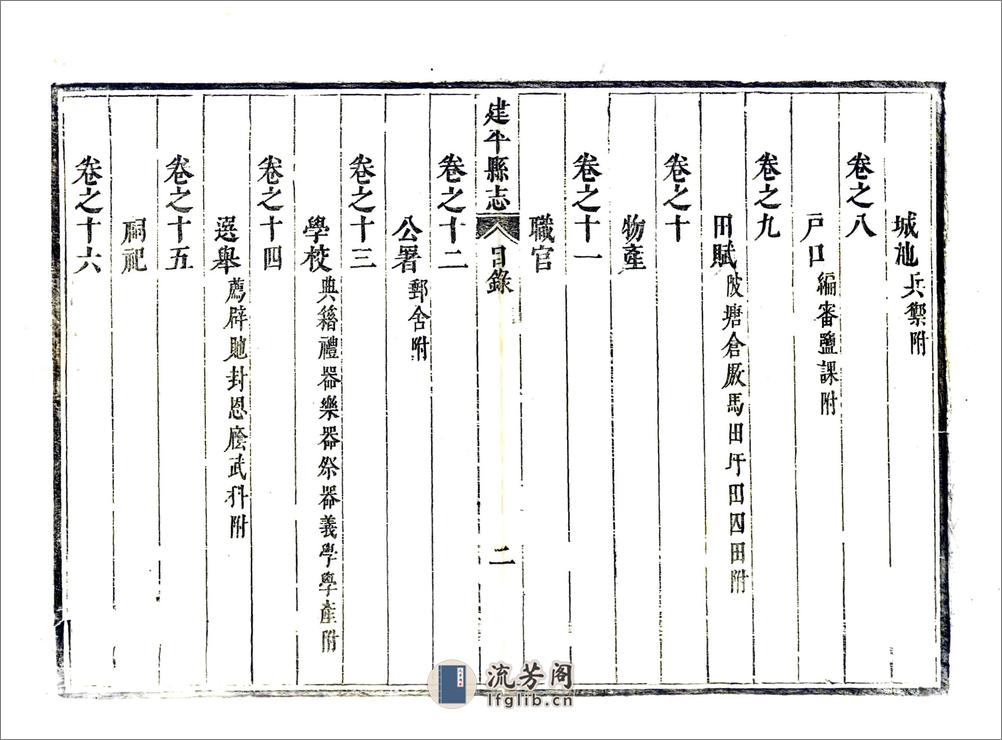 城池兵禦附
卷之八
戸口編審鹽課附
卷之九
田賦陂塘倉厫馬田圩田囚田附
卷之十
物產
卷之十一
職官
建平縣志 目錄 二
卷之十二
公署郵舍附
卷之十三
學校典籍禮器樂器祭器義學學產附
卷之十四
選舉薦辟貤封恩廕武科附
卷之十五
祠祀
卷之十六
流芳阁
lfglib.cn